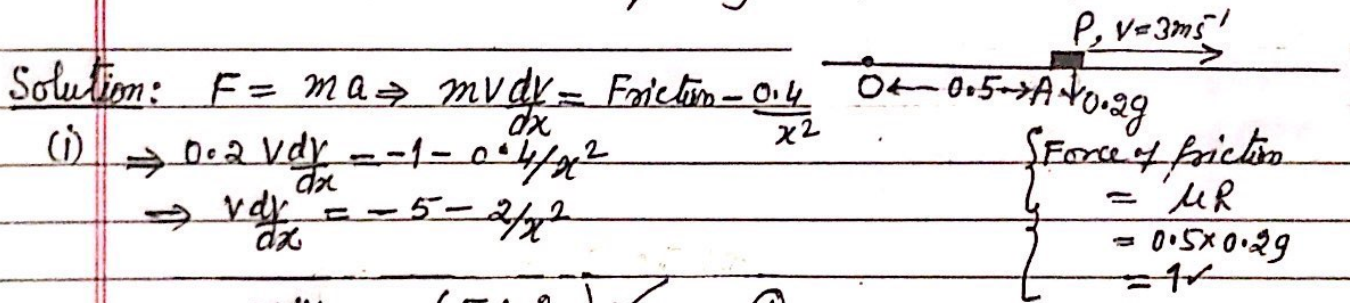 P, V=3ms⁻¹
Solution: F = ma ⇒ mv dv/dx = Friction - 0.4/x²
O ← 0.5 → A ↓ 0.2g
(i) ⇒ 0.2 v dv/dx = -1 - 0.4/x²
⇒ v dv/dx = -5 - 2/x²
{ Force of friction
= μR
= 0.5×0.2g
= 1✓